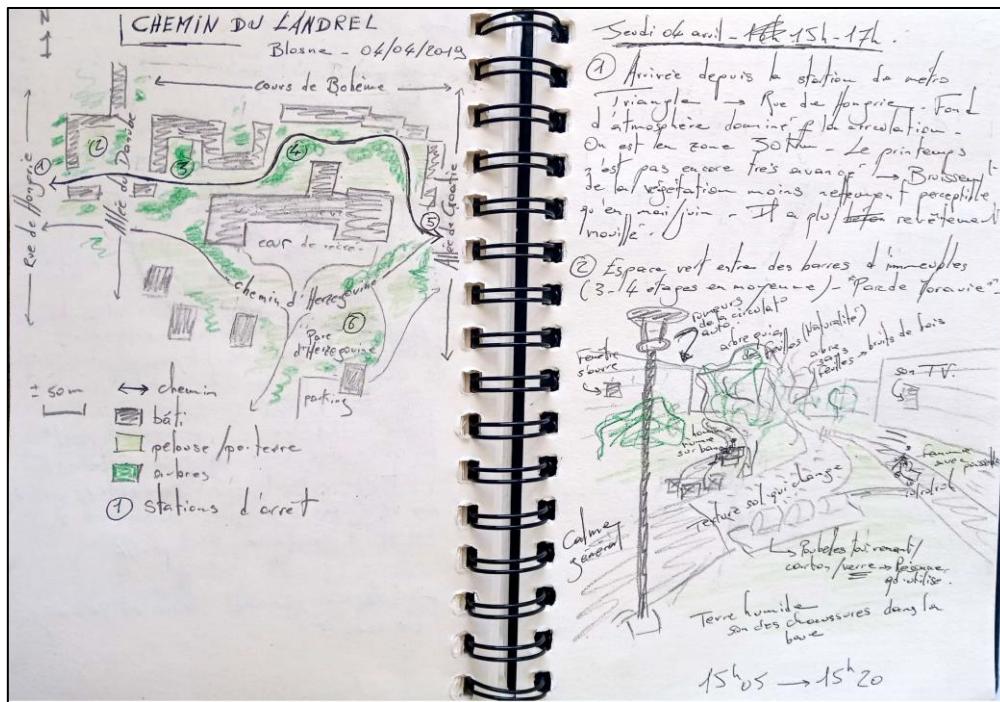 N
CHEMIN DU LANDREL
Blosne - 04/04/2019
cours de Bohème
Rue de Hongrie
Allée du Danube
Allée de Croatie
1
2
3
4
5
6
cour de récré
chemin d'Herzégovine
Parc
d'Herzégovine
parking
± 50m
chemin
bâti
pelouse/parterre
arbres
① stations d'arrêt
Jeudi 04 avril - 15h - 17h.
① Arrivée depuis la station de métro
Triangle → Rue de Hongrie. Fond
d'atmosphère dominé p/ la circulation -
On est en zone 30 km - Le printemps
n'est pas encore très avancé → Bruissemt
de la végétation moins nettement perceptible
qu'en mai/juin - Il a plu revêtement
mouillé.
② Espace vert entre des barres d'immeubles
(3-4 étages en moyenne) -
rumeurs
de la circulat°
auto.
fenêtre
s'ouvre
arbre
feuilles (Naturalité)
arbre
sans
feuilles → bruits de bois
son TV.
homme
fume
sur banc
femme
avec
poussette
Texture sol qui change
Calme
général
↳ Poubelles
carton/verre → Personne
qui utilise.
Terre humide
son des chaussures dans la
boue
15h05 → 15h20